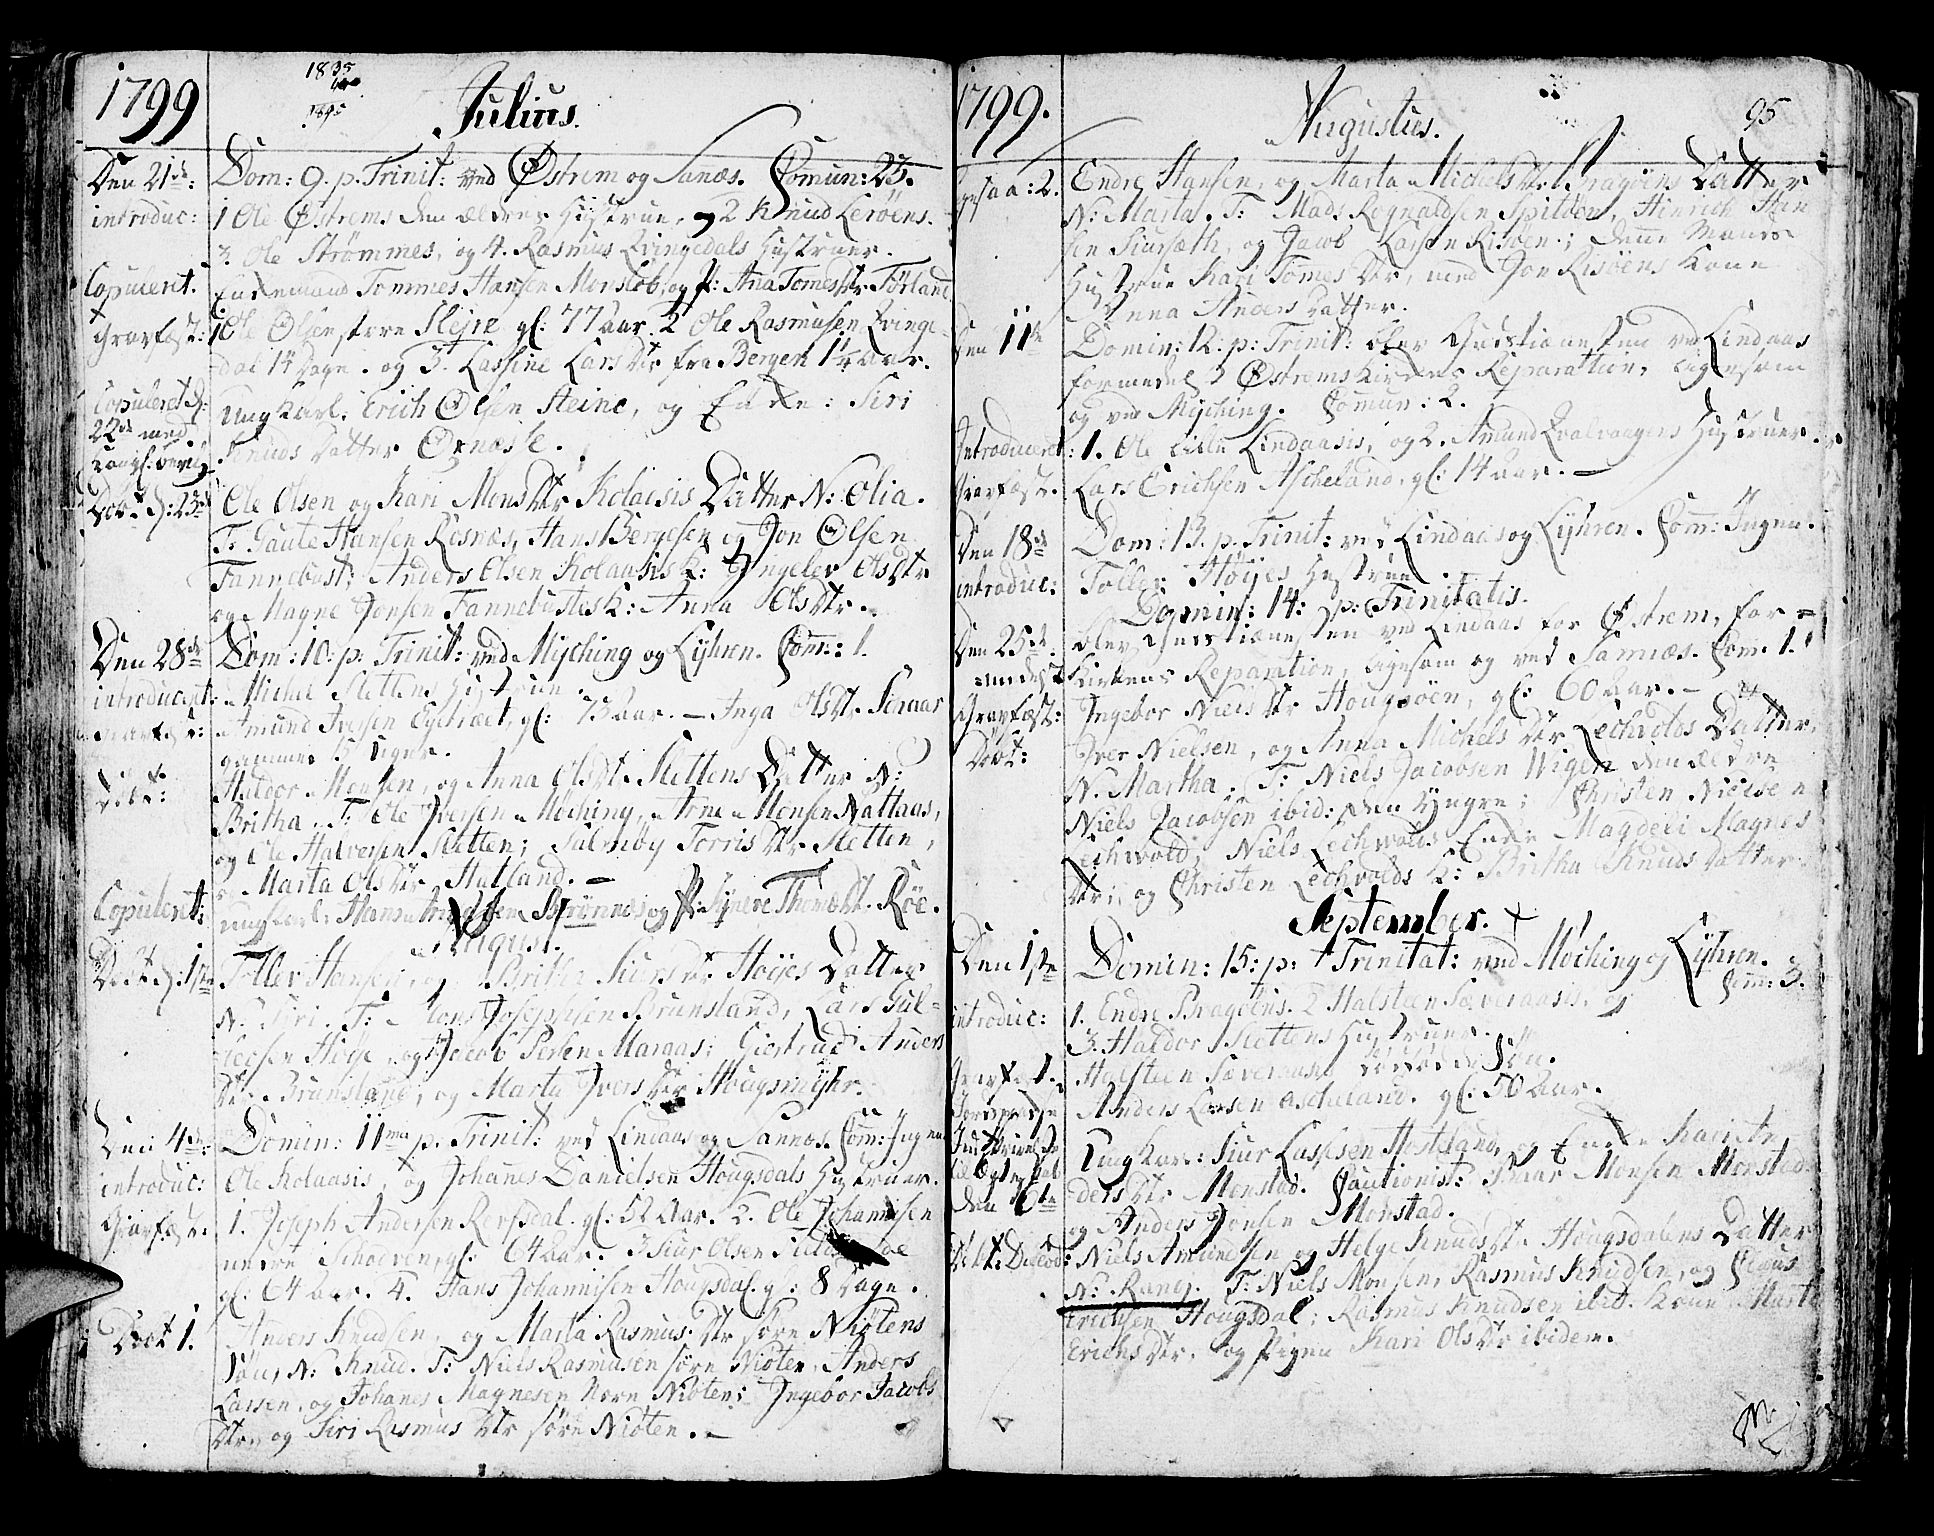 1799
1835
1895
Julius.
Den 21de: Dom: 9. p. Trinit: ved Østrem og Sanæs. Comun: 23.
introduc: 1 Ole Østrems den ældres Hustrue, og 2 Knud Lerøens.
3. Ole Strømmes, og 4. Rasmus Qvingedals Hustruer.
Copuleret. Enkemand Tommes Hansen Monslob, og P: Ana Tomesdtr Förland
Gravfæst: 1 Ole Olsen store Slejre gl: 77 Aar. 2 Ole Rasmusen Qvinge-
dal 14 Dage. og 3. Lassine Larsdtr fra Bergen 1½ Aar.
Copuleret d: 22de med Kongl: bevilg: Ungkarl. Erich Olsen Steine, og Enke: Siri
Knuds Datter Ognøste.
Døbt d: 23de Ole Olsen og Kari Monsdtr Kolaasis Datter N: Olia.
T: Gaute Hansen Risnæs, Hans Bergesen og Jon Olsen
Fannebust; Anders Olsen Kolaasis K: Ingeler Olsdtr
og Magne Jonsen Fannebustes K: Anna Olsdtr.
Den 28de Dom: 10: p: Trinit: ved Myching og Lyhren. Com: 1.
introduceret: Michel Slettens Hustrue.
Gravfæst: Amund Iversen Eystræt, gl: 73 Aar. – Inga Olsdtr Skaar
gammel 15 Uger.
Døbt: Haldor Monsen, og Anna Olsdtr Slettens Datter N:
Britha. T: Ole Iversen Moching, Arne Monsen Nattaas,
og Ole Halvorsen Sletten; Salmøy Torrisdtr Sletten,
Marta Olsdtr Hutland. –
Copuleret: ungkarl: Hans Brönnes og P: Synere Thomædtr Röe.
August.
Døbt d: 1ste Toller Hansen, og Britha Siursdtr Høyes Datter
N: Syri. T: Mons Josephsen Brunsland, Lars Tul-
lersen Høye, og Jacob Persen Maraas; Giertrud Anders
Dtr Brunsland, og Marta Iversdtr Hougsmyhr.
Den 4de: Domin: 11ma p. Trinit: ved Lindaas og Sannæs. Com: Ingen
introduc: Ole Kolaasis, og Johanes Danielsen Hougsdals Hustruer.
Gravfæst: 1. Joseph Andersen Rossdal. gl: 52 Aar. 2. Ole Johannisen
nedre Schodven, gl: 64 Aar. 3 Siur Olsen
gl: 64 Aar. 4. Hans Johannisen Hougsdal. g: 8 Dage.
Døbt 1. Anders Knudsen, og Marta Rasmusdtr söre Niötens
Søn, N: Knud. T: Niels Rasmusen söre Niöten, Anders
Larsen, og Johanes Magnesen Nore Niöten; Ingebor Jacobs
Dtr og Siri Rasmusdtr söre Niöten. –
1799.
Augustus.
95
2. Endre Hansen, og Marta Michelsdtr Bragöens Datter
N: Marta. T: Mads Regnaldsen Spitöen, Hinrich Han
sen Siursæth, og Jacob Larsen Risöen; denne Mands
Hustrue Kari Tomesdtr, med Jon Risöens Kone
Anna Anders Datter.
Den 11te Domin: 12. p: Trinit: blev Gudstieneste ved Lindaas
formedelst Østrems Kirkes Reparation, ligesom
og ved Myching. Comun: 2.
Introduceret: 1. Ole lille Lindaasis, og 2. Amund Qvalvaagens Hustruer.
Gravfæst. Lars Erichsen Ascheland, gl: 14 Aar. –
Den 18de Dom: 13. p. Trinit: ved Lindaas og Lyhren. Com: Ingen.
introduc: Toller Høyes Hustrue.
Domin: 14: p: Trinitatis.
Den 25de blev Gudstienesten ved Lindaas for Østrem, for-
medelst Kirkens Reparation, ligesom og ved Sannæs. Com. 1.
Gravfæst: Ingebor Nielsdtr Hougsöen, gl: 60 Aar. –
Døbt: Iver Nielsen, og Anna Michelsdtr Lechvolds Datter,
N: Martha. T: Niels Jacobsen Wigen den ældre
Niels Jacobsen ibid: den yngre; Christen Nielsen
Lechvold; Niels Lechvolds Enke Magdeli Magnes
Dtr; og Christen Lechvolds K: Britha Knuds Datter.
September.
Den 1ste Domin: 15: p: Trinitat: ved Moching og Lyhren.
Com: 3.
introduc: 1. Endre Bragöens. 2 Halsteen Sæveraasis, og
3. Haldor Slettens Hustruer.
Gravfæst. Halsteen Sæveraas dødfød Søn.
Anders Larsen Ascheland. gl: 50 Aar.
Den 6te Ungkarl: Siur Lassesen Hestdland, og Enke Kari An-
dersdtr Monstad. Cautionist: Einar Monsen Monstad
og Anders Jonsen Monstad.
Døbt: Niels Amundsen og Helge Knudsdtr Hougsdalens Datter
N: Rang. T: Niels Monsen, Rasmus Knudsen, og Claus
Erichsen Hougsdal; Rasmus Knudsen ibid. Kone Marta
Erichsdtr. og Pigen Kari Olsdtr ibidem.